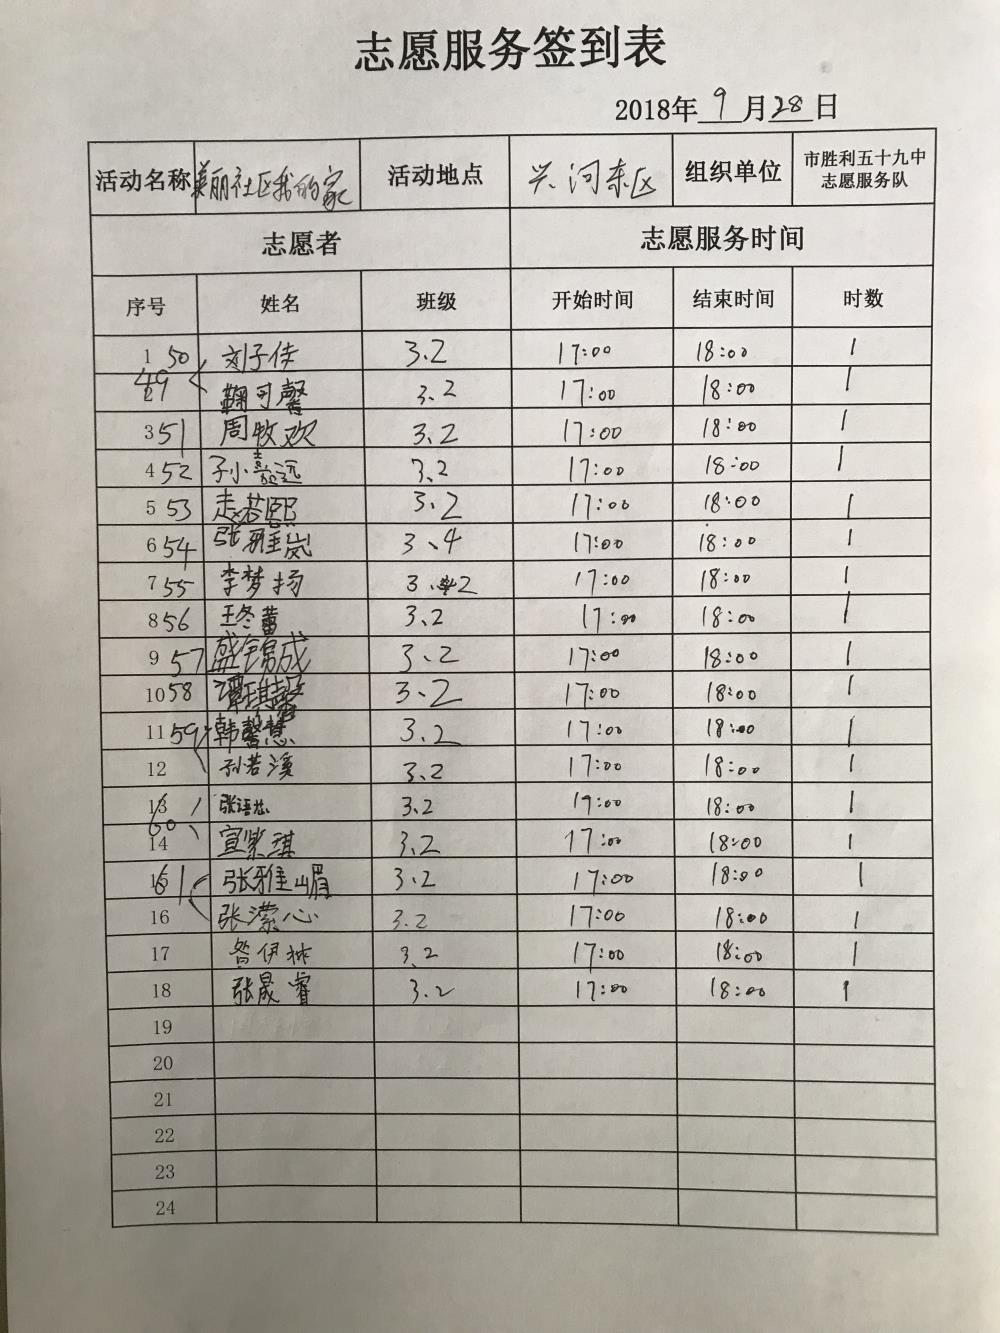 志愿服务签到表
2018年 9 月 28 日
活动名称 美丽社区我的家 活动地点 兴河东区 组织单位 市胜利五十九中
志愿服务队
志愿者 志愿服务时间
序号 姓名 班级 开始时间 结束时间 时数
1 50 刘子佳 3.2 17:00 18:00 1
2 49 鞠可馨 3.2 17:00 18:00 1
3 51 周牧欢 3.2 17:00 18:00 1
4 52 3.2 17:00 18:00 1
5 53 赵若熙 3.2 17:00 18:00 1
6 54 张雅岚 3、4 17:00 18:00 1
7 55 李梦扬 3.2 17:00 18:00 1
8 56 王冬蕾 3.2 17:00 18:00 1
9 57 盛锦成 3.2 17:00 18:00 1
10 58 谭琪馨 3.2 17:00 18:00 1
11 59 韩馨慧 3.2 17:00 18:00 1
12 孙若溪 3.2 17:00 18:00 1
13 60 张语芯 3.2 17:00 18:00 1
14 宣紫琪 3.2 17:00 18:00 1
15 61 张雅嵋 3.2 17:00 18:00 1
16 张潆心 3.2 17:00 18:00 1
17 昝伊林 3.2 17:00 18:00 1
18 张晟睿 3.2 17:00 18:00 1
19
20
21
22
23
24